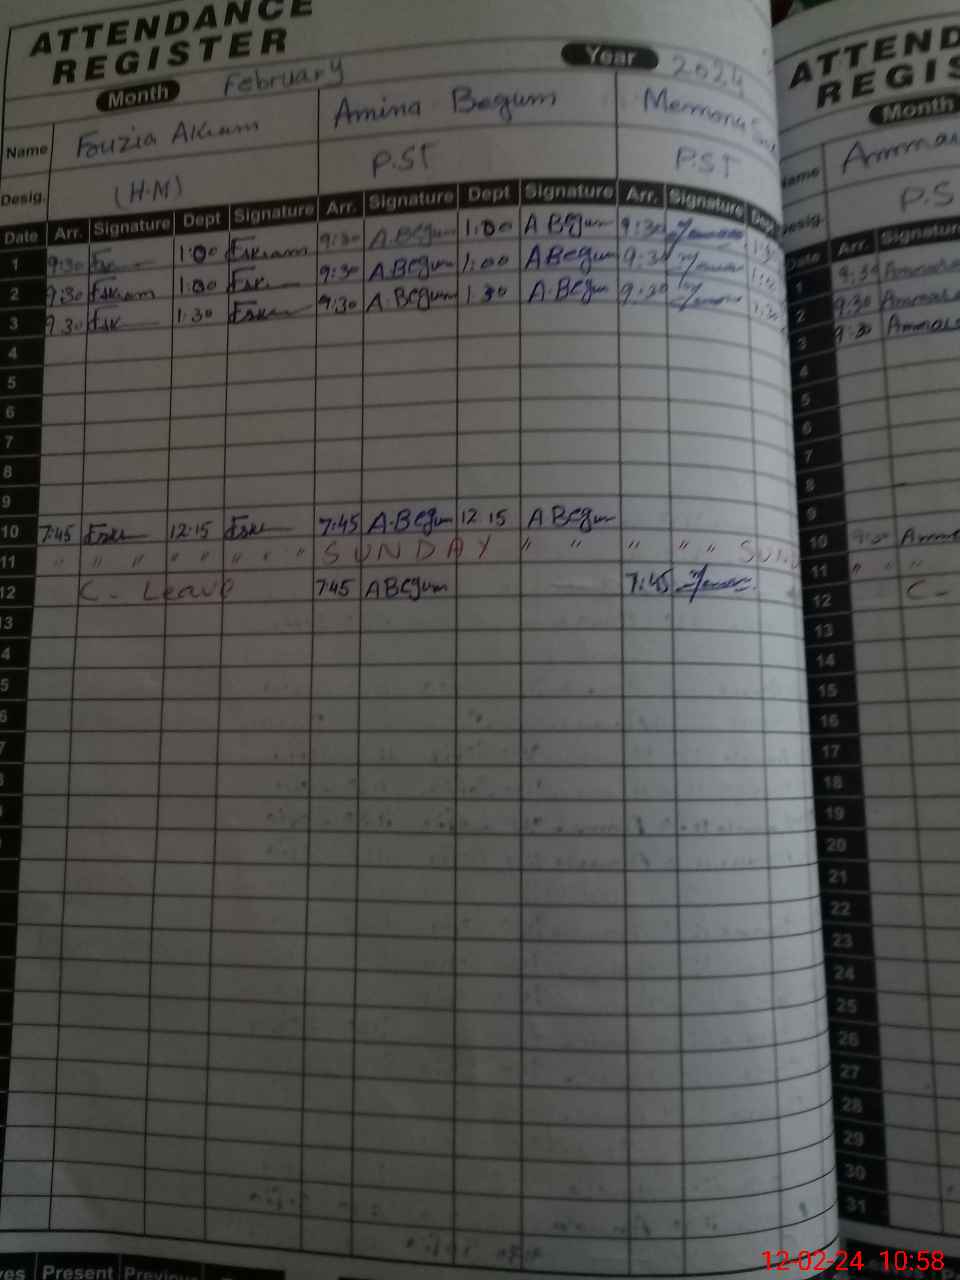 ATTENDANCE
REGISTER
Month February Year 2024
Name Fouzia Akram Amina Begum Memona
Desig. (H.M) P.ST P.ST
Date Arr. Signature Dept Signature Arr. Signature Dept Signature Arr. Signature Dept
1 9:30 1:00 Eskram 9:30 A.Begum 1:00 A Begum 9:30
2 9:30 Eskram 1:00 9:30 A.Begum 1:00 A Begum 9:30
3 9:30 1:30 9:30 A.Begum 1:30 A.Begum 9:30
4
5
6
7
8
9
10 7:45 12:15 7:45 A.Begum 12:15 A Begum
11 " " " " " " " SUNDAY " " " " " SUND
12 C. Leave 7:45 A Begum 7:45
13
4
5
6
7
Present
ATTEND
REGIS
Month
Name Amma
Desig. P.S
Date Arr. Signatur
1 9:30
2 9:30
3 9:30
4
5
6
7
8
9
10 9:30
11 " " "
12 C-
13
14
15
16
17
18
19
20
21
22
23
24
25
26
27
28
29
30
31
12-02-24 10:58